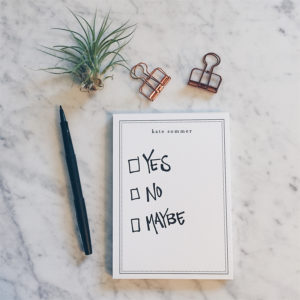 kate sommer
YES
NO
MAYBE